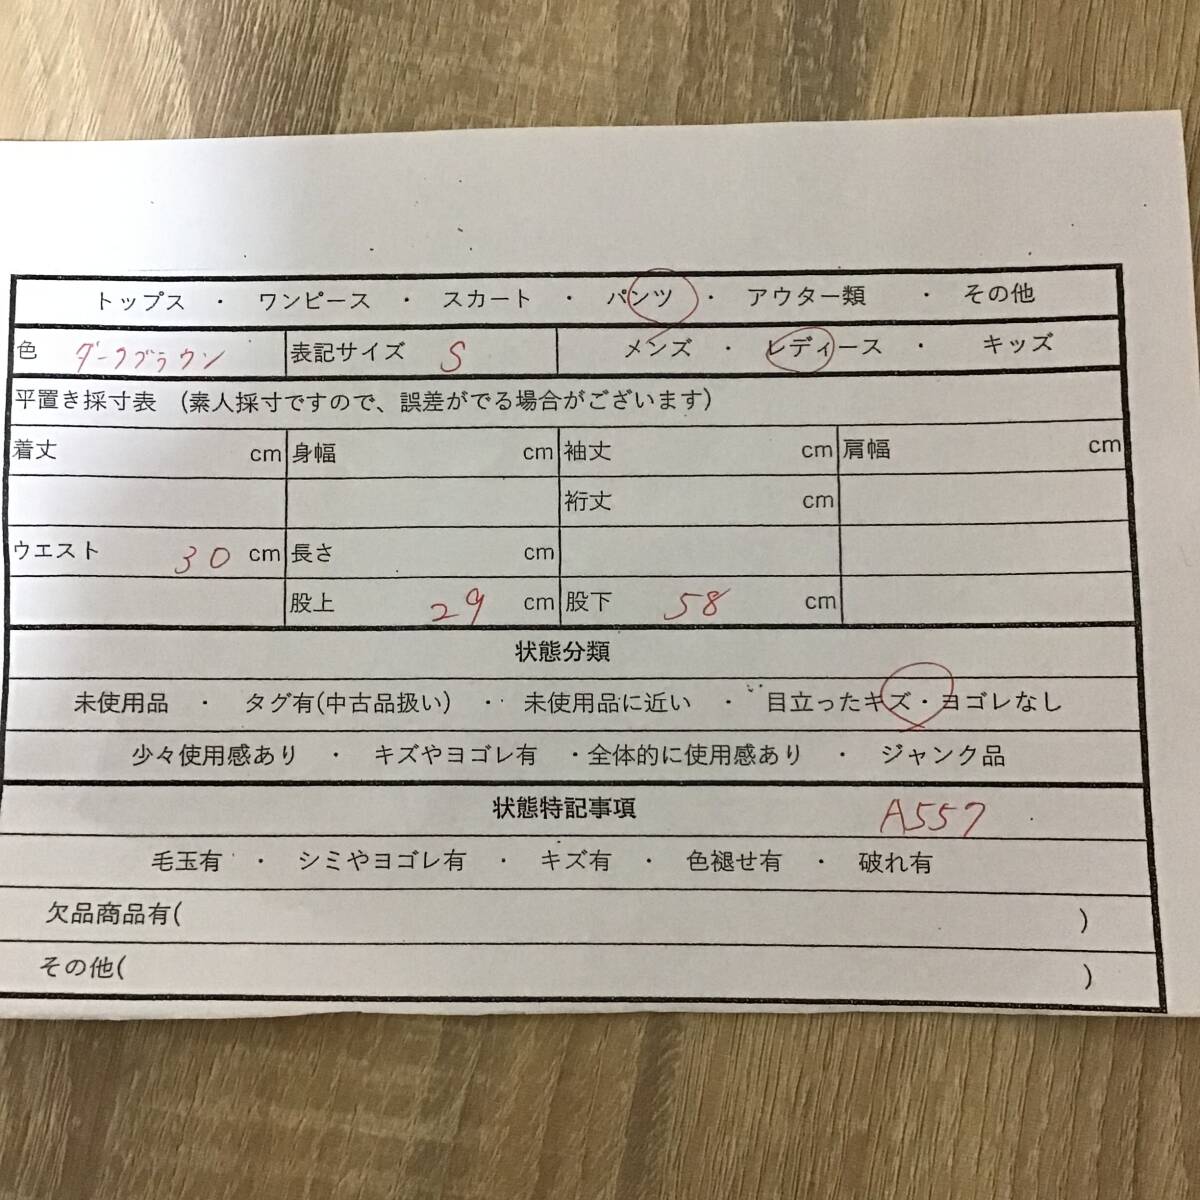 トップス ・ ワンピース ・ スカート ・ パンツ ・ アウター類 ・ その他
色 ダークブラウン 表記サイズ S メンズ ・ レディース ・ キッズ
平置き採寸表 (素人採寸ですので、誤差がでる場合がございます)
着丈 cm 身幅 cm 袖丈 cm 肩幅 cm
裄丈 cm
ウエスト 30 cm 長さ cm
股上 29 cm 股下 58 cm
状態分類
未使用品 ・ タグ有(中古品扱い) ・ 未使用品に近い ・ 目立ったキズ・ヨゴレなし
少々使用感あり ・ キズやヨゴレ有 ・全体的に使用感あり ・ ジャンク品
状態特記事項 A557
毛玉有 ・ シミやヨゴレ有 ・ キズ有 ・ 色褪せ有 ・ 破れ有
欠品商品有( )
その他( )